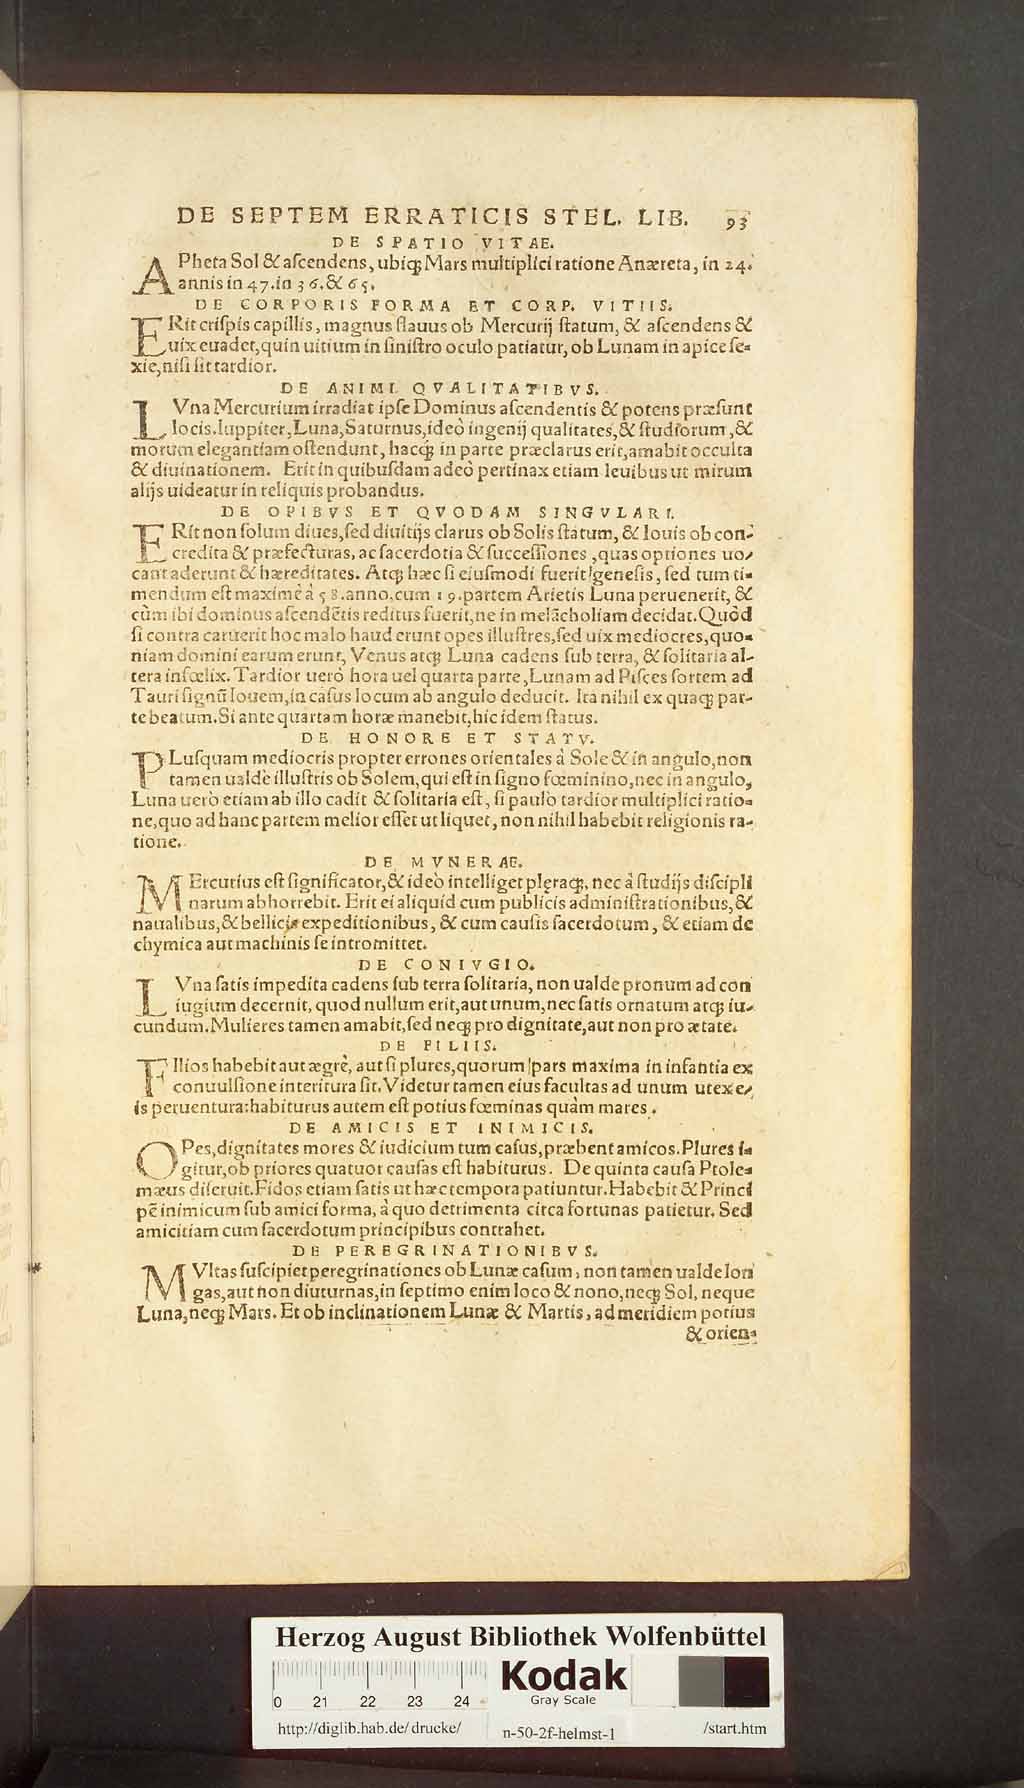 DE SEPTEM ERRATICIS STEL. LIB. 93
DE SPATIO VITAE.
APheta Sol & aſcendens, ubiq; Mars multiplici ratione Anæreta, in 24.
annis in 47. in 36. & 65.
DE CORPORIS FORMA ET CORP. VITIIS.
ERit criſpis capillis, magnus flauus ob Mercurij ſtatum, & aſcendens &
uix euadet, quin uitium in ſiniſtro oculo patiatur, ob Lunam in apice ſe=
xie, niſi ſit tardior.
DE ANIMI QVALITATIBVS.
LVna Mercurium irradiat ipſe Dominus aſcendentis & potens præſunt
locis. Iuppiter, Luna, Saturnus, ideò ingenij qualitates, & ſtudiorum, &
morum elegantiam oſtendunt, hacq; in parte præclarus erit, amabit occulta
& diuinationem. Erit in quibuſdam adeò pertinax etiam leuibus ut mirum
alijs uideatur in reliquis probandus.
DE OPIBVS ET QVODAM SINGVLARI.
ERit non ſolum diues, ſed diuitijs clarus ob Solis ſtatum, & Iouis ob con=
credita & præfecturas, ac ſacerdotia & ſucceſſiones, quas optiones uo-
cant aderunt & hæreditates. Atq; hæc ſi eiuſmodi fuerit geneſis, ſed tum ti=
mendum eſt maximè à 58. anno, cum 19. partem Arietis Luna peruenerit, &
cùm ibi dominus aſcendẽtis reditus fuerit, ne in melãcholiam decidat. Quòd
ſi contra caruerit hoc malo haud erunt opes illuſtres, ſed uix mediocres, quo=
niam domini earum erunt, Venus atq; Luna cadens ſub terra, & ſolitaria al-
tera infœlix. Tardior uerò hora uel quarta parte, Lunam ad Piſces ſortem ad
Tauri ſignũ Iouem, in caſus locum ab angulo deducit. Ita nihil ex quaq; par-
te beatum. Si ante quartam horæ manebit, hic idem ſtatus.
DE HONORE ET STATV.
PLuſquam mediocris propter errones orientales à Sole & in angulo, non
tamen ualdè illuſtris ob Solem, qui eſt in ſigno fœminino, nec in angulo,
Luna uerò etiam ab illo cadit & ſolitaria eſt, ſi paulò tardior multiplici ratio=
ne, quo ad hanc partem melior eſſet ut liquet, non nihil habebit religionis ra-
tione.
DE MVNERAE.
MErcurius eſt ſignificator, & ideò intelliget pleraq;, nec à ſtudijs diſcipli
narum abhorrebit. Erit ei aliquid cum publicis adminiſtrationibus, &
naualibus, & bellicis expeditionibus, & cum cauſis ſacerdotum, & etiam de
chymica aut machinis ſe intromittet.
DE CONIVGIO.
LVna ſatis impedita cadens ſub terra ſolitaria, non ualde pronum ad con
iugium decernit, quod nullum erit, aut unum, nec ſatis ornatum atq; iu-
cundum. Mulieres tamen amabit, ſed neq; pro dignitate, aut non pro ætate.
DE FILIIS.
FIlios habebit aut ægrè, aut ſi plures, quorum pars maxima in infantia ex
conuulſione interitura ſit. Videtur tamen eius facultas ad unum ut ex e-
is peruentura: habiturus autem eſt potius fœminas quàm mares.
DE AMICIS ET INIMICIS.
OPes, dignitates mores & iudicium tum caſus, præbent amicos. Plures i=
gitur, ob priores quatuor cauſas eſt habiturus. De quinta cauſa Ptole=
mæus diſeruit. Fidos etiam ſatis ut hæc tempora patiuntur. Habebit & Princi
pẽ inimicum ſub amici forma, à quo detrimenta circa fortunas patietur. Sed
amicitiam cum ſacerdotum principibus contrahet.
DE PEREGRINATIONIBVS.
MVltas ſuſcipiet peregrinationes ob Lunæ caſum, non tamen ualde lon
gas, aut non diuturnas, in ſeptimo enim loco & nono, neq; Sol, neque
Luna, neq; Mars. Et ob inclinationem Lunæ & Martis, ad meridiem potius
& orien=
Herzog August Bibliothek Wolfenbüttel
Kodak
Gray Scale
0 21 22 23 24
http://diglib.hab.de/drucke/ n-50-2f-helmst-1 /start.htm